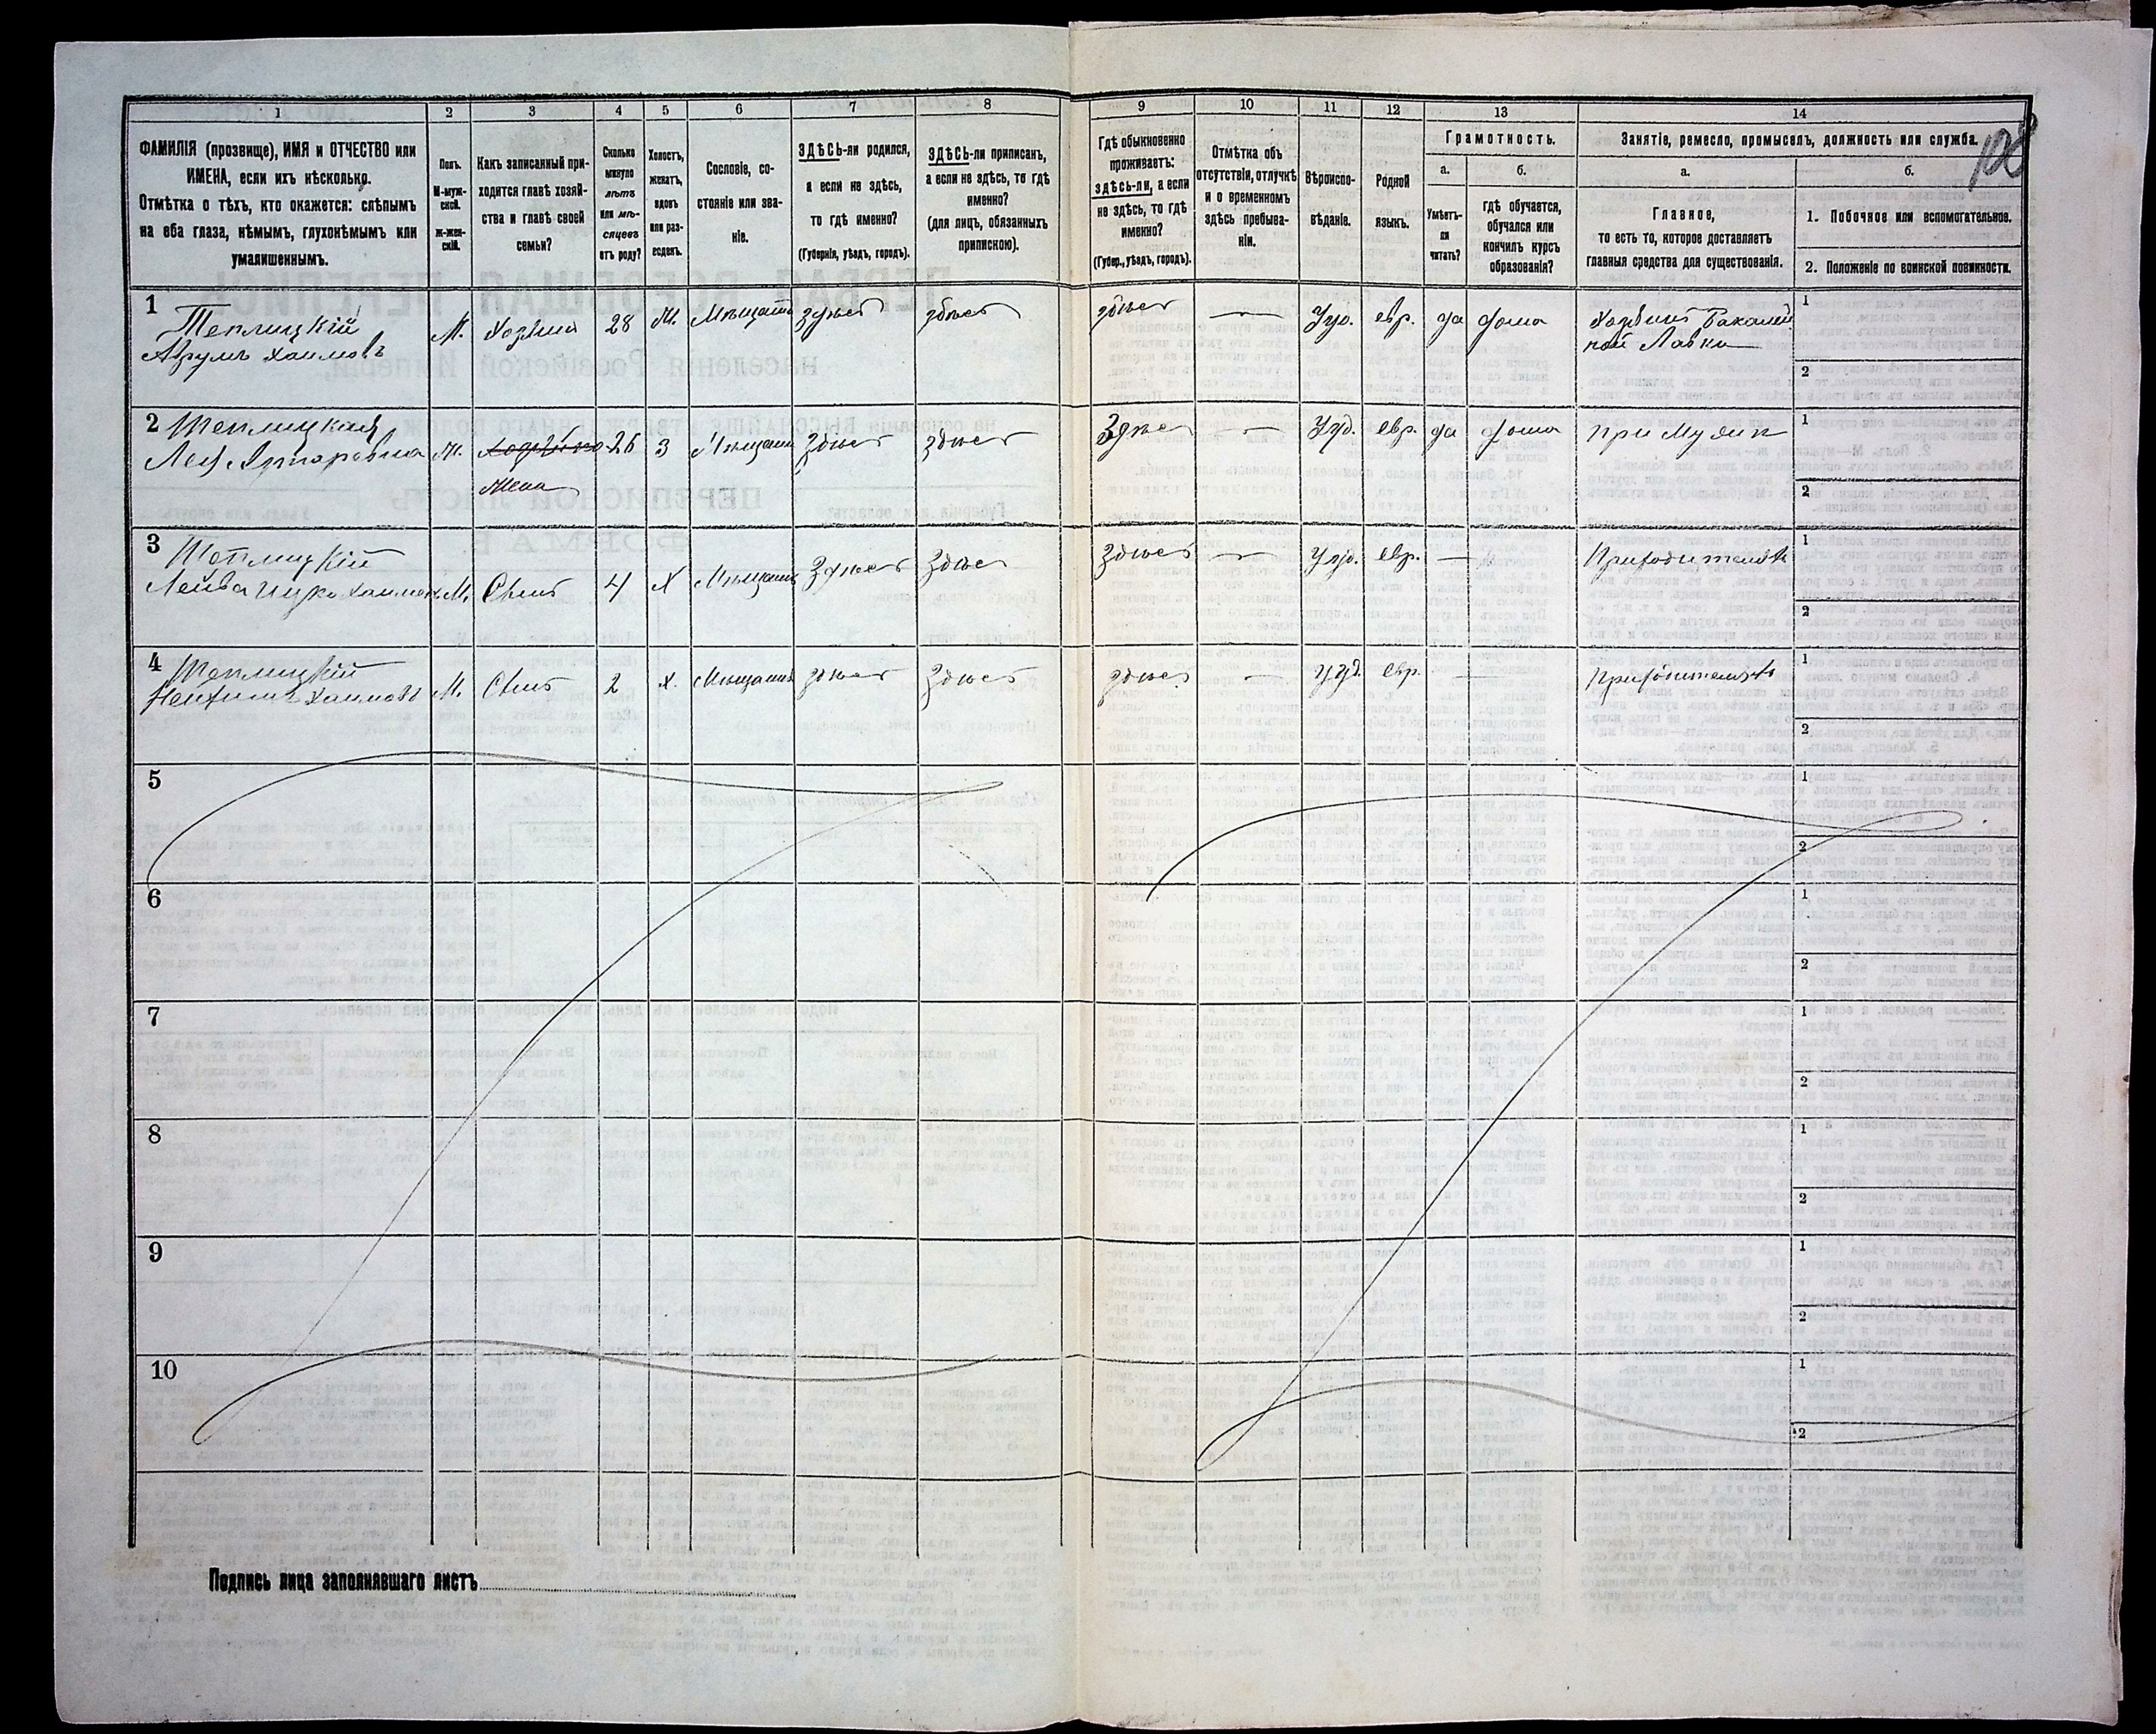 1
2
3
4
5
6
7
8
9
10
11
12
13
14
108
ФАМИЛІЯ (прозвище), ИМЯ и ОТЧЕСТВО или
ИМЕНА, если ихъ нѣсколько.
Отмѣтка о тѣхъ, кто окажется: слѣпымъ
на оба глаза, нѣмымъ, глухонѣмымъ или
умалишеннымъ.
Полъ.
М-муж-
ской.
ж-жен-
скій.
Какъ записанный при-
ходится главѣ хозяй-
ства и главѣ своей
семьи?
Сколько
минуло
лѣтъ
или мѣ-
сяцевъ
отъ роду?
Холостъ,
женатъ,
вдовъ
или раз-
веденъ.
Сословіе, со-
стояніе или зва-
ніе.
ЗДѢСЬ-ли родился,
а если не здѣсь,
то гдѣ именно?
(Губернія, уѣздъ, городъ).
ЗДѢСЬ-ли приписанъ,
а если не здѣсь, то гдѣ
именно?
(для лицъ, обязанныхъ
припискою).
Гдѣ обыкновенно
проживаетъ:
здѣсь-ли, а если
не здѣсь, то гдѣ
именно?
(Губер., уѣздъ, городъ).
Отмѣтка объ
отсутствіи, отлучкѣ
и о временномъ
здѣсь пребыва-
ніи.
Вѣроиспо-
вѣданіе.
Родной
языкъ.
Грамотность.
а.
Умѣетъ-
ли
читать?
б.
гдѣ обучается,
обучался или
кончилъ курсъ
образованія?
Занятіе, ремесло, промыселъ, должность или служба.
а.
Главное,
то есть то, которое доставляетъ
главныя средства для существованія.
б.
1. Побочное или вспомогательное.
2. Положеніе по воинской повинности.
1
Теплицкій
Аврумъ Хаимовъ
М.
Хозяин
28
Ж.
Мѣщанин
здѣсь
здѣсь
здѣсь
—
Іуд.
евр.
да
дома
Хозяинъ Бакалей
ной Лавки
1
2
2 Теплицкая
Лея
М.
Хозяйка
Жена
26
З
Мѣщанин
Здѣсь
здѣсь
Здѣсь
—
Іуд.
евр.
да
дома
при Мужѣ
1
2
3
Теплицкій
Лейба Ицко Хаимов
М.
Сынъ
4
Х
Мѣщанин
Здѣсь
Здѣсь
Здѣсь
—
Іуд.
евр.
—
При родителяхъ
1
2
4
Теплицкій
Хаимовъ
М.
Сынъ
2
х.
Мѣщанин
здѣсь
Здѣсь
здѣсь
—
іуд.
евр.
—
При родителяхъ
1
2
5
1
2
6
1
2
7
1
2
8
1
2
9
1
2
10
1
2
Подпись лица заполнявшаго листъ